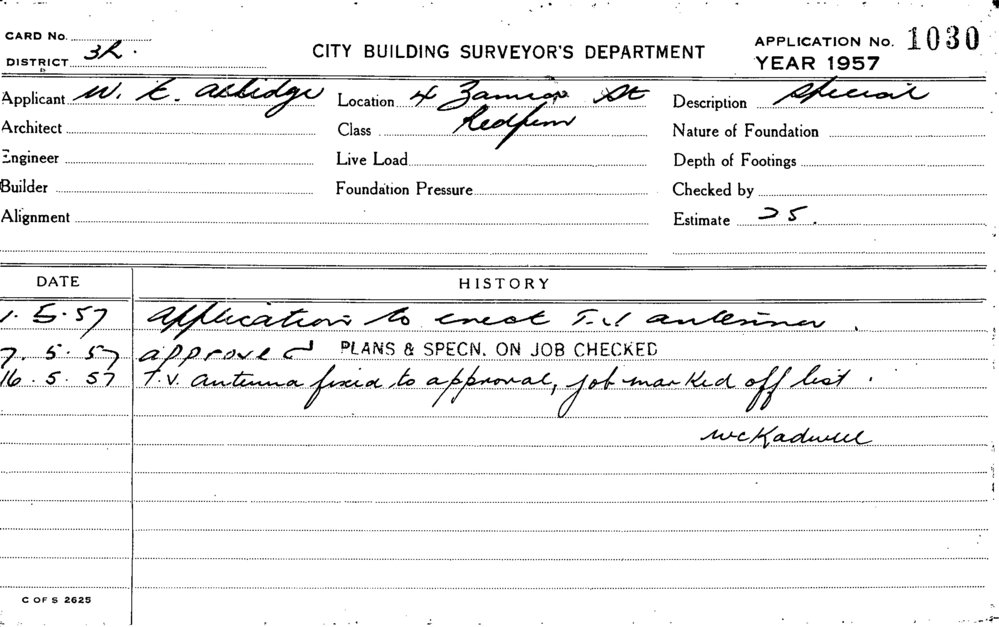 CARD No.
DISTRICT 3h.
CITY BUILDING SURVEYOR'S DEPARTMENT
APPLICATION No. 1030
YEAR 1957
Applicant W. E. Albidge Location 4 St Description Special
Architect Class Redfern Nature of Foundation
Engineer Live Load Depth of Footings
Builder Foundation Pressure Checked by
Alignment Estimate 25.
DATE HISTORY
1.5.57 Application to erect T.V antenna.
7.5.57 approved PLANS & SPECN. ON JOB CHECKED
16.5.57 T.V. antenna fixed to approval, job marked off list.
WCKadwell
C OF S 2625